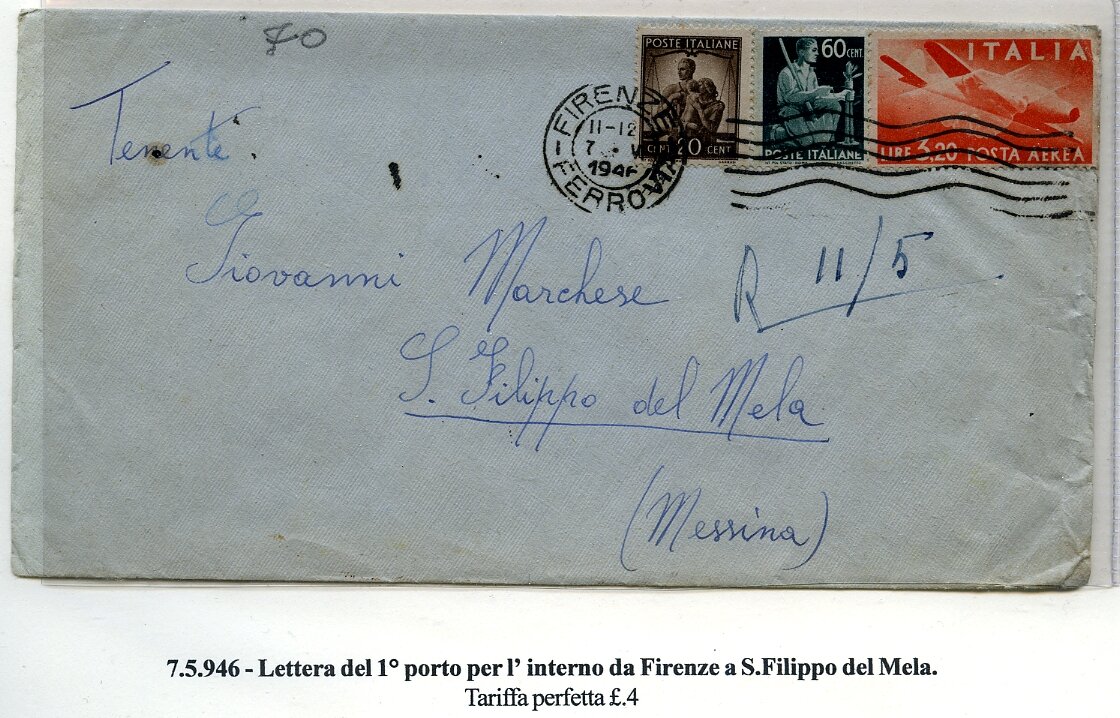 70
POSTE ITALIANE
CENT 20 CENT
60 CENT.
POSTE ITALIANE
ITALIA
LIRE 3,20 POSTA AEREA
FIRENZE
11-12
7
1946
FERROVIA
Tenente
Giovanni Marchese
R 11/5
S. Filippo del Mela
(Messina)
7.5.946 - Lettera del 1° porto per l' interno da Firenze a S.Filippo del Mela.
Tariffa perfetta £.4